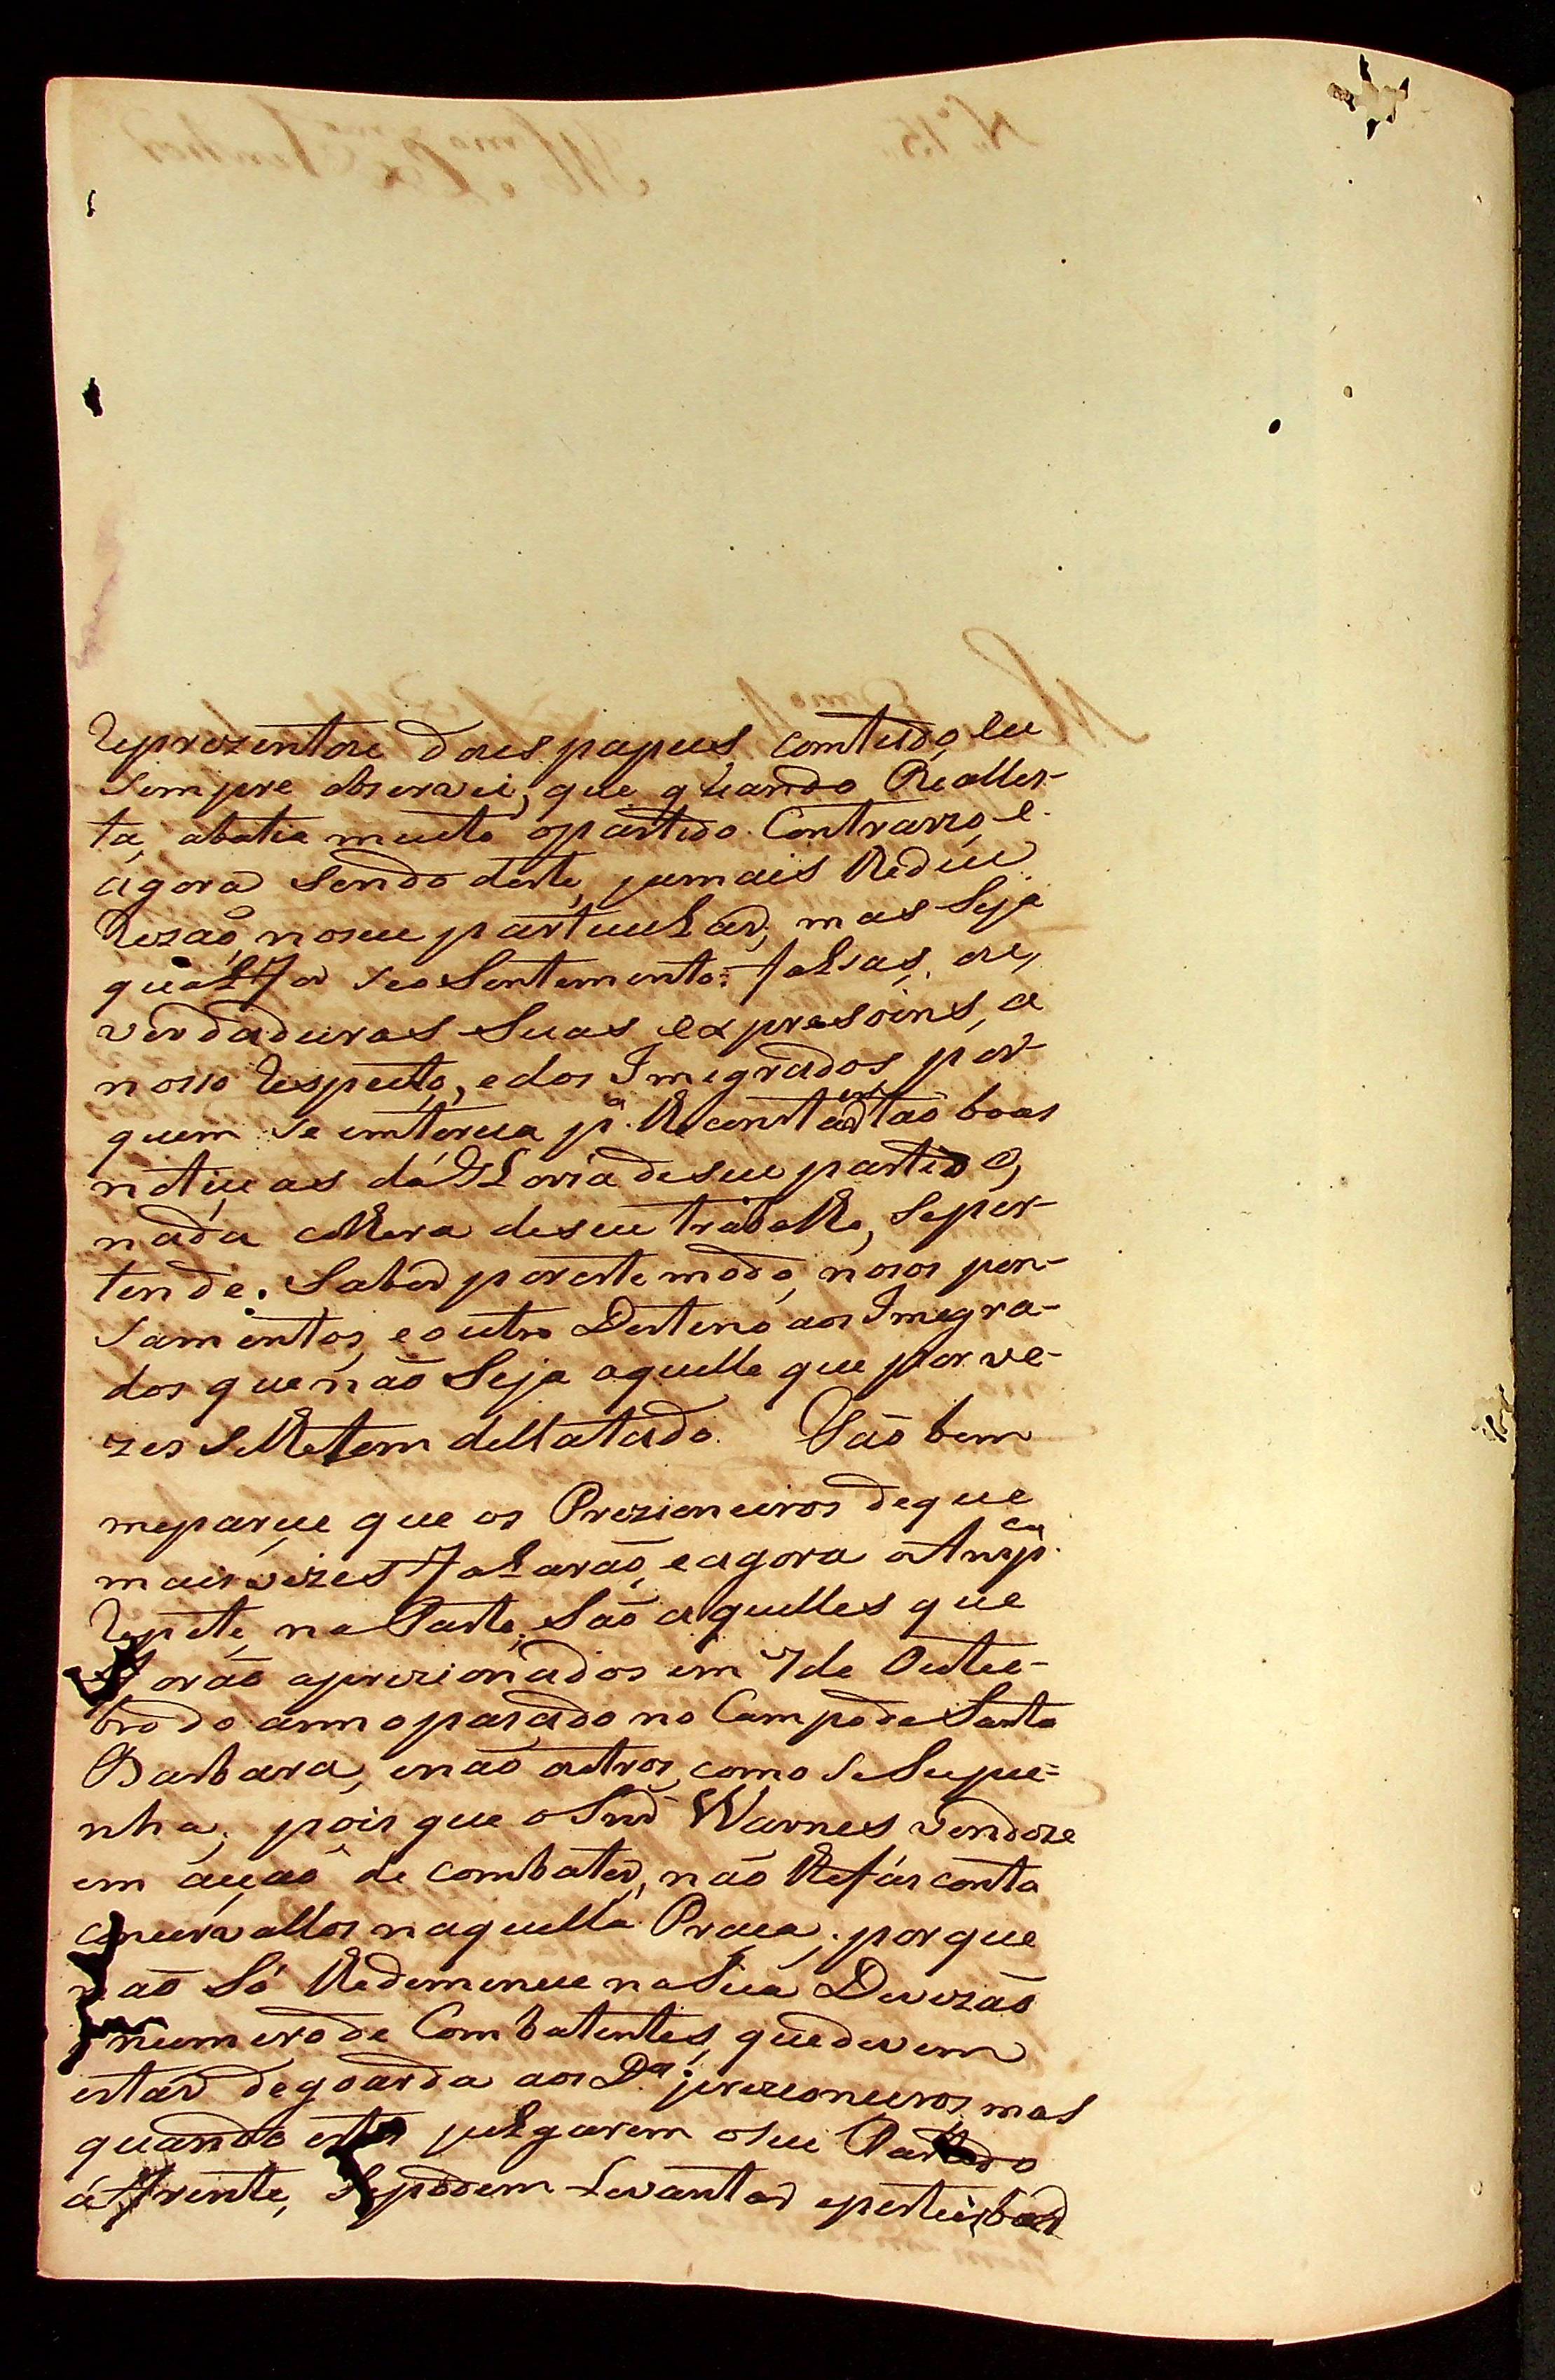 reprezentou dous papeis, comtudo, eu
sempre observei, que quando Realles-
ta, abatia muito opartido Contrario, e
ágora sendo deste, jamais lhe dice
Rezaó, noseu particular, mas Seja
qual for seo Sentemento: falsas, ou,
verdadeiras Suas expresoins, a
nosso respeito, e dos Imegrados, por
quem se emtereça p.ª lhe constar tão boas
noticias dá Gloria deseu partido,
nada colhera deseu trabalho, Seper-
tende. Saber poreste modo, nosos pen-
samentos, eoutro Destino aos Imegra-
dos que não Seja aquelle que por ve-
zes selhetem dellatado. Não bem
meparece que os Prezioneiros deque
mais vezes falarão, eagora
repete, na Parte, São aquelles que
forão aprezionados em 7 de Outu-
bro do anno pasado no Campo de Santa
Barbara, enão outros, como seSupu-
nha; pois que o Snr̃ Warnes, vendose
em acção de combater, não lhe fás conta
concervallos naquella Praça; porque
não Só lhe demenue na Sua Devizão
numero de Combatentes, que devem
estar de goarda aos D.os prezioneiros, mas
quando estes julgarem oseu Partido
áffrente, Se podem Levantar eperturbar
N.º 15.
Ill.mo e Ex.mo Senhor